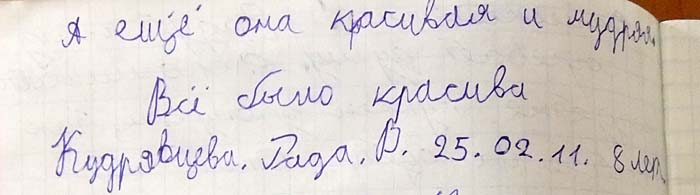 А ещё она красивая и мудрая.
Всё было красива
Кудрявцева. Лада. В. 25.02.11. 8 лет.